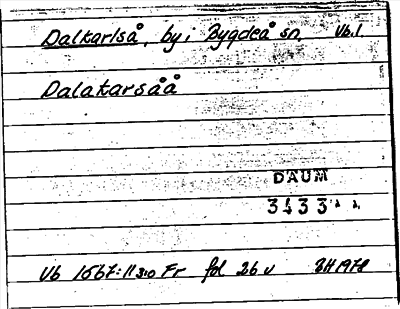 Dalkarlså, by i Bygdeå sn, Vb.l
Dalakarsåå
DAUM
3433
Vb 1567:11 fol 26 v 1978